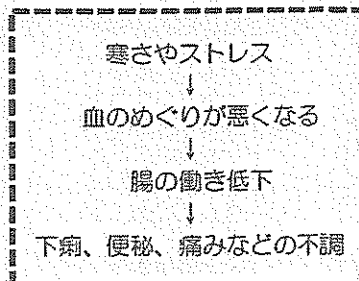 寒さやストレス
↓
血のめぐりが悪くなる
↓
腸の働き低下
↓
下痢、便秘、痛みなどの不調